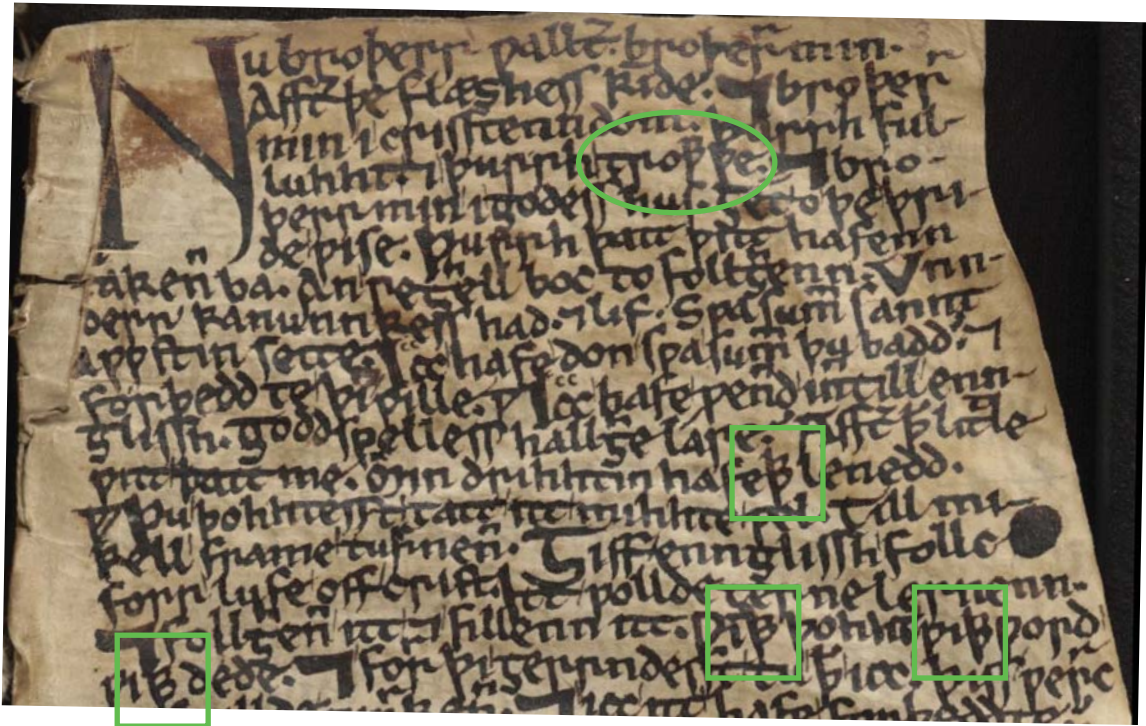 Nu broþerr ƿallterr. broþerr min.
Affterr þe flæshess kide. ⁊ broþerr
min i crisstenndom. þurrh ful-
luhht. ⁊ þurrh troƿƿþe. ⁊ bro-
þerr min i godess hus. ȝet o þe þri-
de ƿise. þurrh þatt ƿitt hafenn
takenn ba. An reȝhell boc to follȝhenn. Unn-
derr kanunnkess had. ⁊ lif. Sƿa summ sannt
aƿƿstin sette. Icc hafe don sƿa summ þu badd. ⁊
forþedd te þin ƿille. Icc hafe ƿennd inntill enn-
glissh. goddspelless hallȝhe lare. Affterr þatt little
ƿitt þatt me. min drihhtin hafeþþ lenedd.
þu þohhtesst tatt itt mihhte ƿel. Till mi-
kell frame turrnenn. ȝiff ennglissh follc
forr lufe off crist. itt ƿollde ȝerne lernenn.
⁊ follȝhenn itt. ⁊ fillenn itt. ƿiþþ þohht. ƿiþþ ƿord.
ƿiþþ dede. ⁊ forrþi ȝerrndesst tu þatt icc þiss ƿerrc